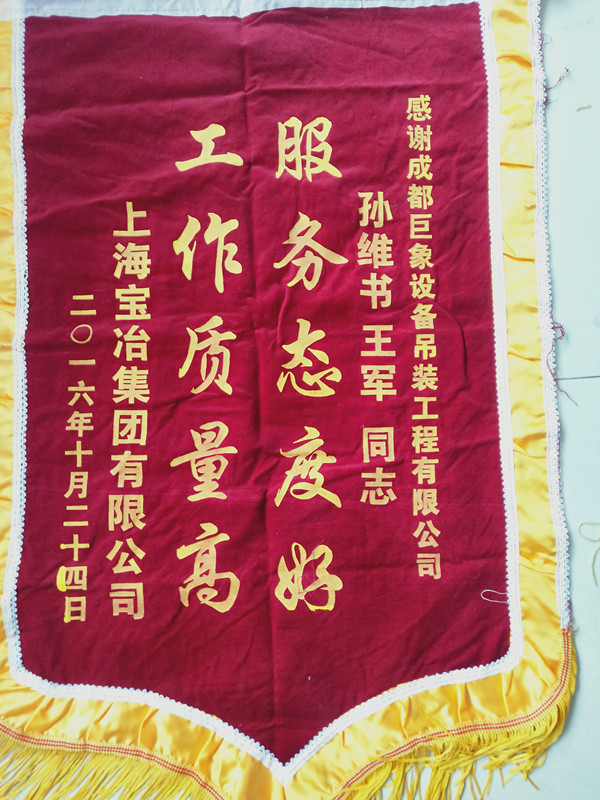 感谢成都巨象设备吊装工程有限公司
孙维书 王军 同志
服务态度好
工作质量高
上海宝冶集团有限公司
二〇一六年十月二十四日